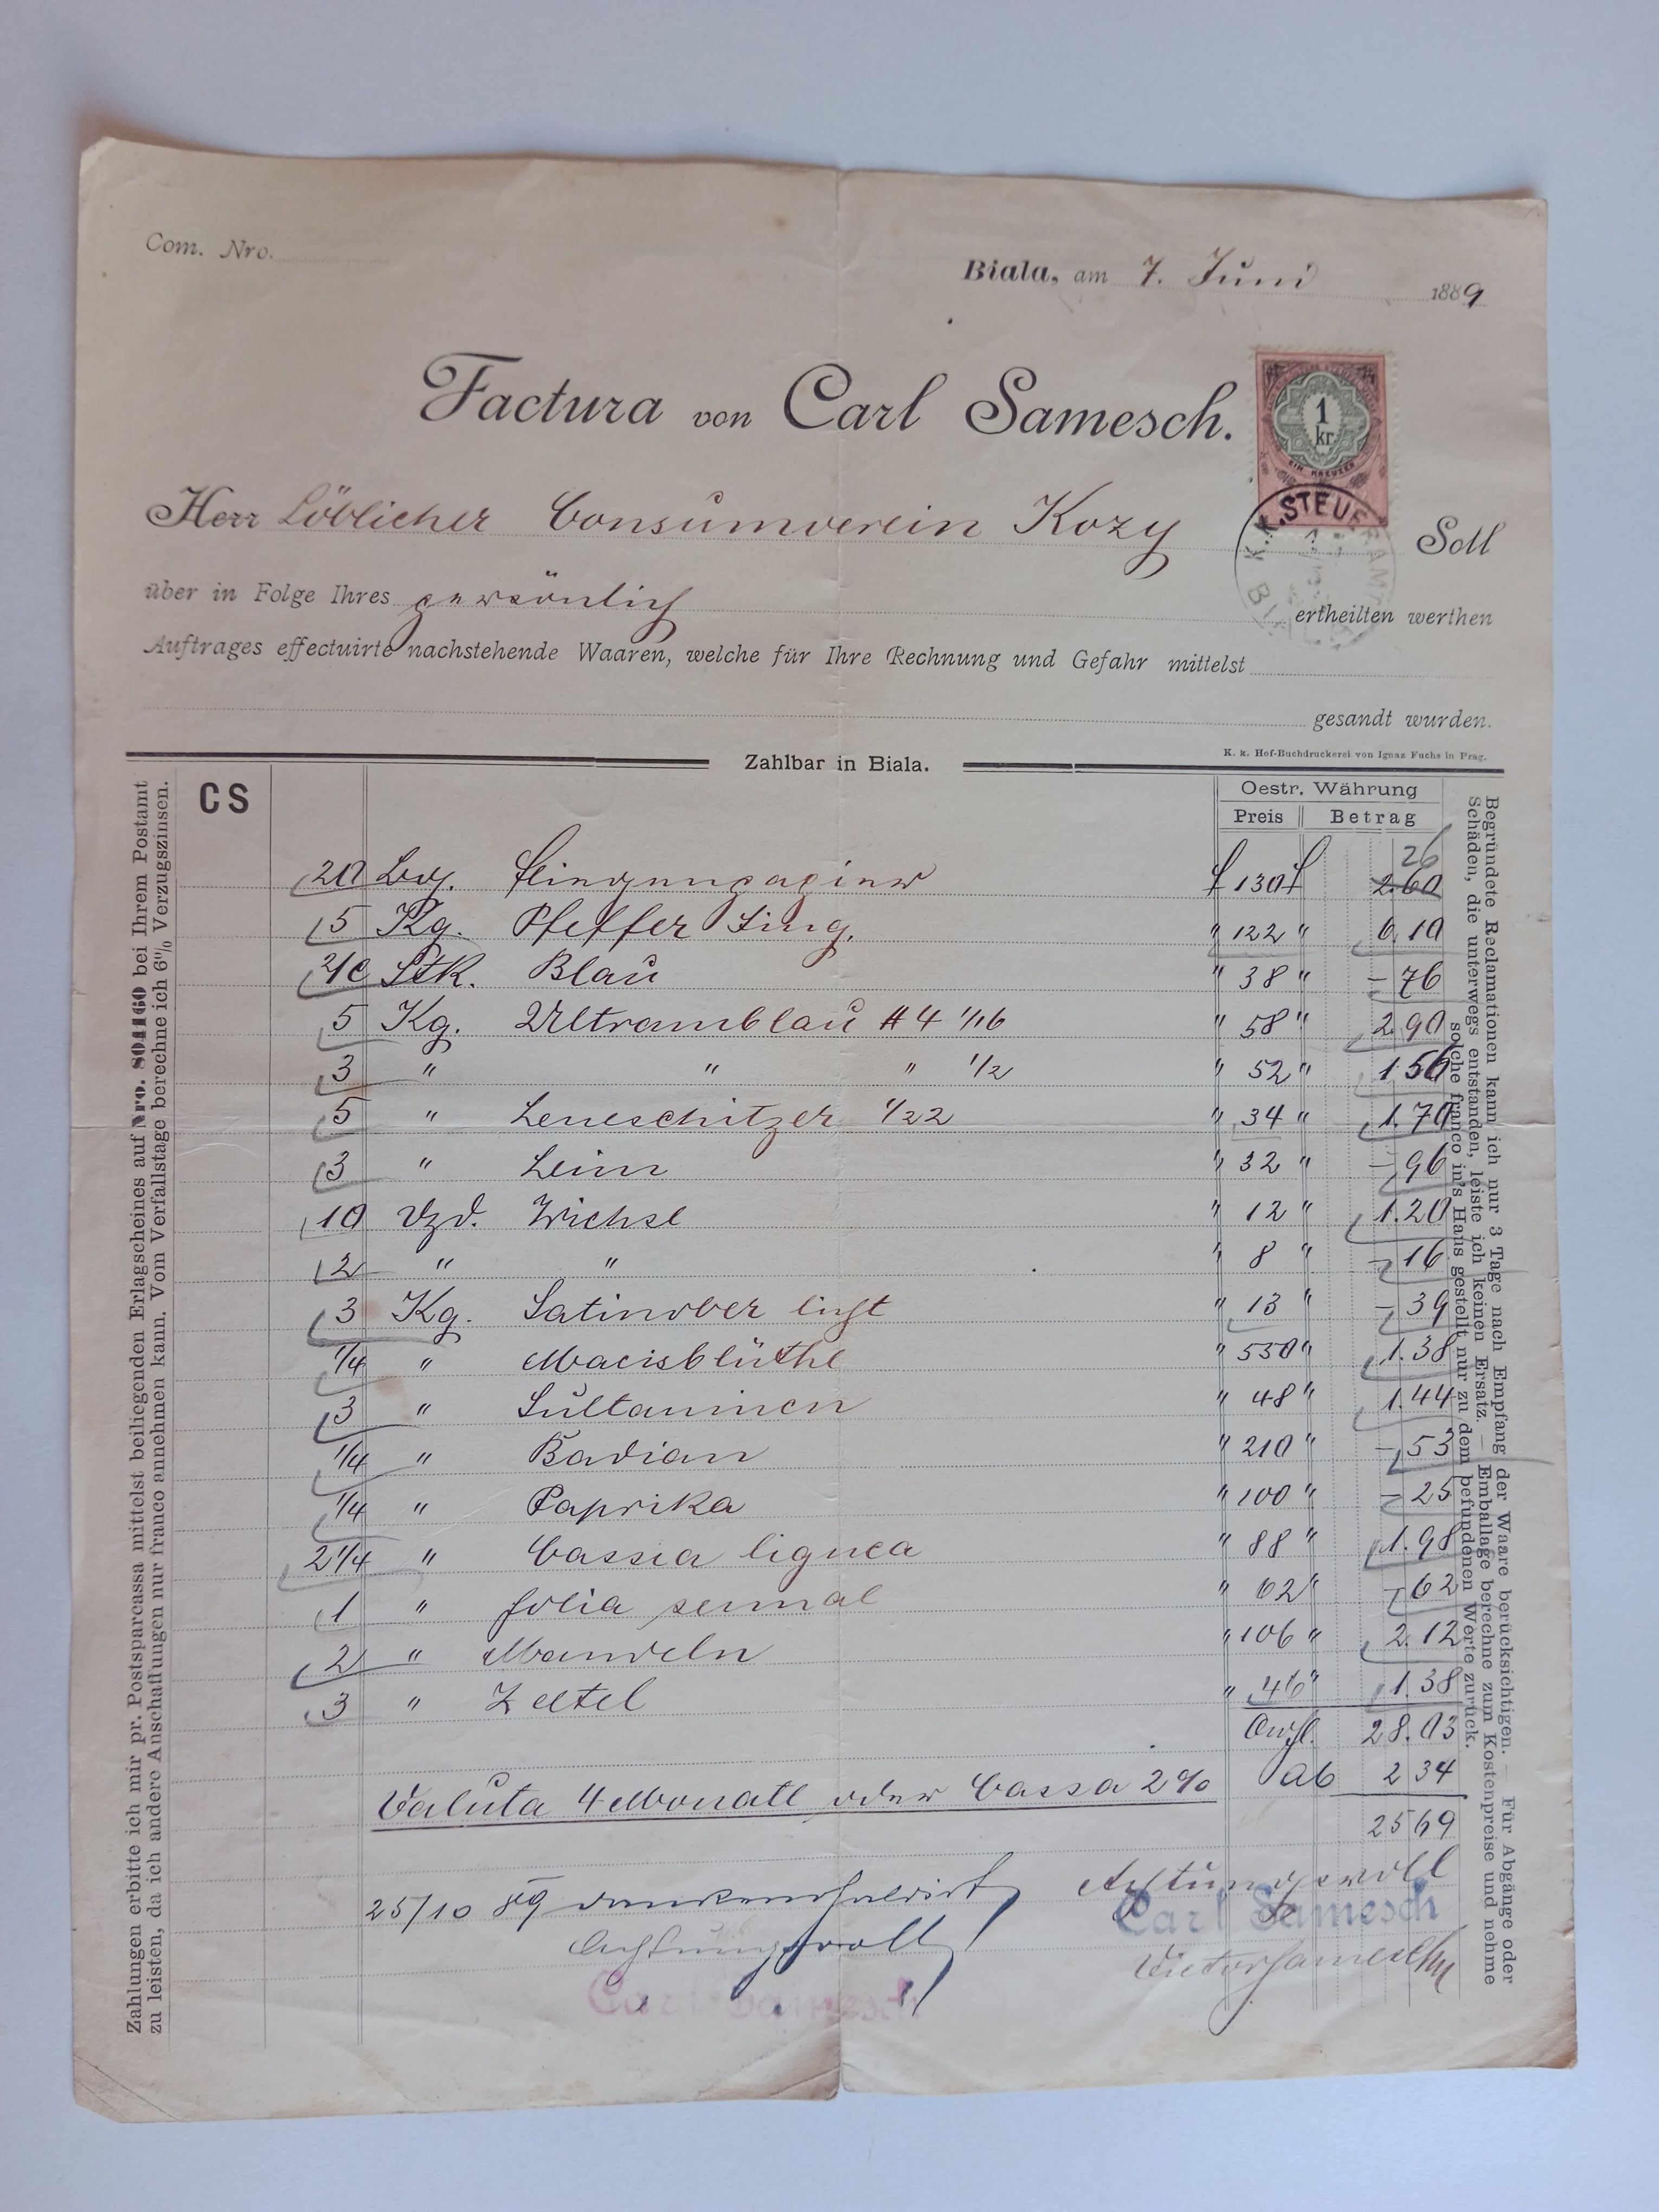 Com. Nro.
Biala, am 7. Juni 1889
Factura von Carl Samesch.
1
kr
EIN KREUZER
K. K. STEUERAMT
Herr Löblicher Consumverein Kozy Soll
über in Folge Ihres persönlich ertheilten werthen
Auftrages effectuirte nachstehende Waaren, welche für Ihre Rechnung und Gefahr mittelst
gesandt wurden.
Zahlbar in Biala.
K. k. Hof-Buchdruckerei von Ignaz Fuchs in Prag.
CS
Oestr. Währung
Preis Betrag
26
20 f 130 f 2.60
5 Kg. Pfeffer Sing. " 122 " 6.10
Stk. Blau " 38 " – 76
5 Kg. Ultramblau #4 1/16 " 58 " 2.90
3 " " " 1/2 " 52 " 1.56
5 " Leneschitzer 1/22 " 34 " 1.70
3 " Leim " 32 " – 96
10 Dzd. Wichse " 12 " 1.20
2 " " " 8 " – 16
3 Kg. Satinober licht " 13 " – 39
1/4 " Macisblüthe " 550 " 1.38
3 " Sultaninen " 48 " 1.44
1/4 " Badian " 210 " – 53
1/4 " Paprika " 100 " – 25
2 1/4 " Cassia lignea " 88 " 1.98
1 " folia " 62 " – 62
2 " Mandeln " 106 " 2.12
3 " Zeltel " 46 " 1.38
28.03
Valuta 4 Monate oder Cassa 2% ab 2 34
25 69
25/10 89 dankend saldirt Achtungsvoll
Carl Samesch
Achtungsvoll Victor Samesch
Carl Samesch
Zahlungen erbitte ich mir pr. Postsparcassa mittelst beiliegenden Erlagscheines auf Nro. 804160 bei Ihrem Postamt
zu leisten, da ich andere Anschaffungen nur franco annehmen kann. Vom Verfallstage berechne ich 6% Verzugszinsen.
Begründete Reclamationen kann ich nur 3 Tage nach Empfang der Waare berücksichtigen. — Für Abgänge oder
Schäden, die unterwegs entstanden, leiste ich keinen Ersatz. — Emballage berechne zum Kostenpreise und nehme
solche franco in's Haus gestellt nur zu dem befundenen Werte zurück.